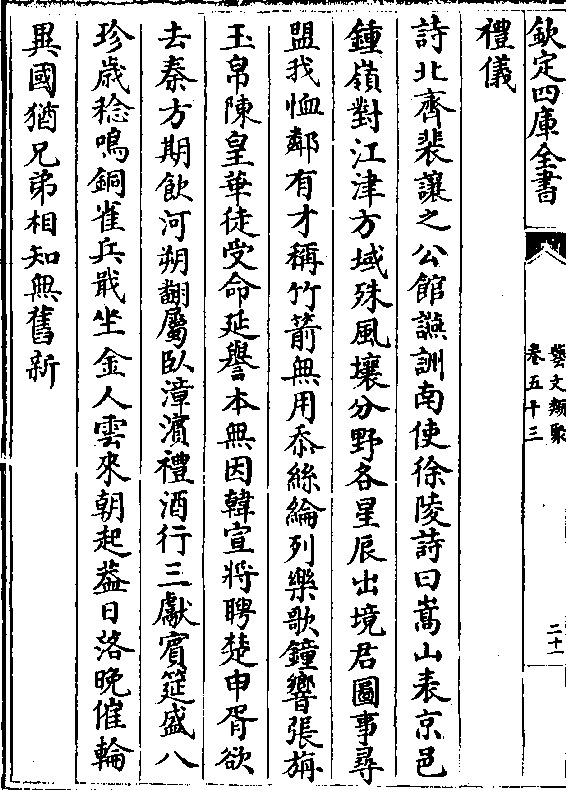 欽定四庫全書
藝文類聚
卷五十三
二十一
禮儀
詩北齊裴讓之公館讌詶南使徐陵詩曰嵩山表京邑
鍾嶺對江津方域殊風壤分野各星辰出境君圖事尋
盟我恤鄰有才稱竹箭無用忝絲綸列樂歌鐘響張旃
玉帛陳皇華徒受命延譽本無因韓宣將聘楚申胥欲
去秦方期飲河朔翻屬臥漳濱禮酒行三獻賓筵盛八
珍歲稔鳴銅雀兵戢坐金人雲來朝起葢日落晚催輪
異國猶兄弟相知無舊新